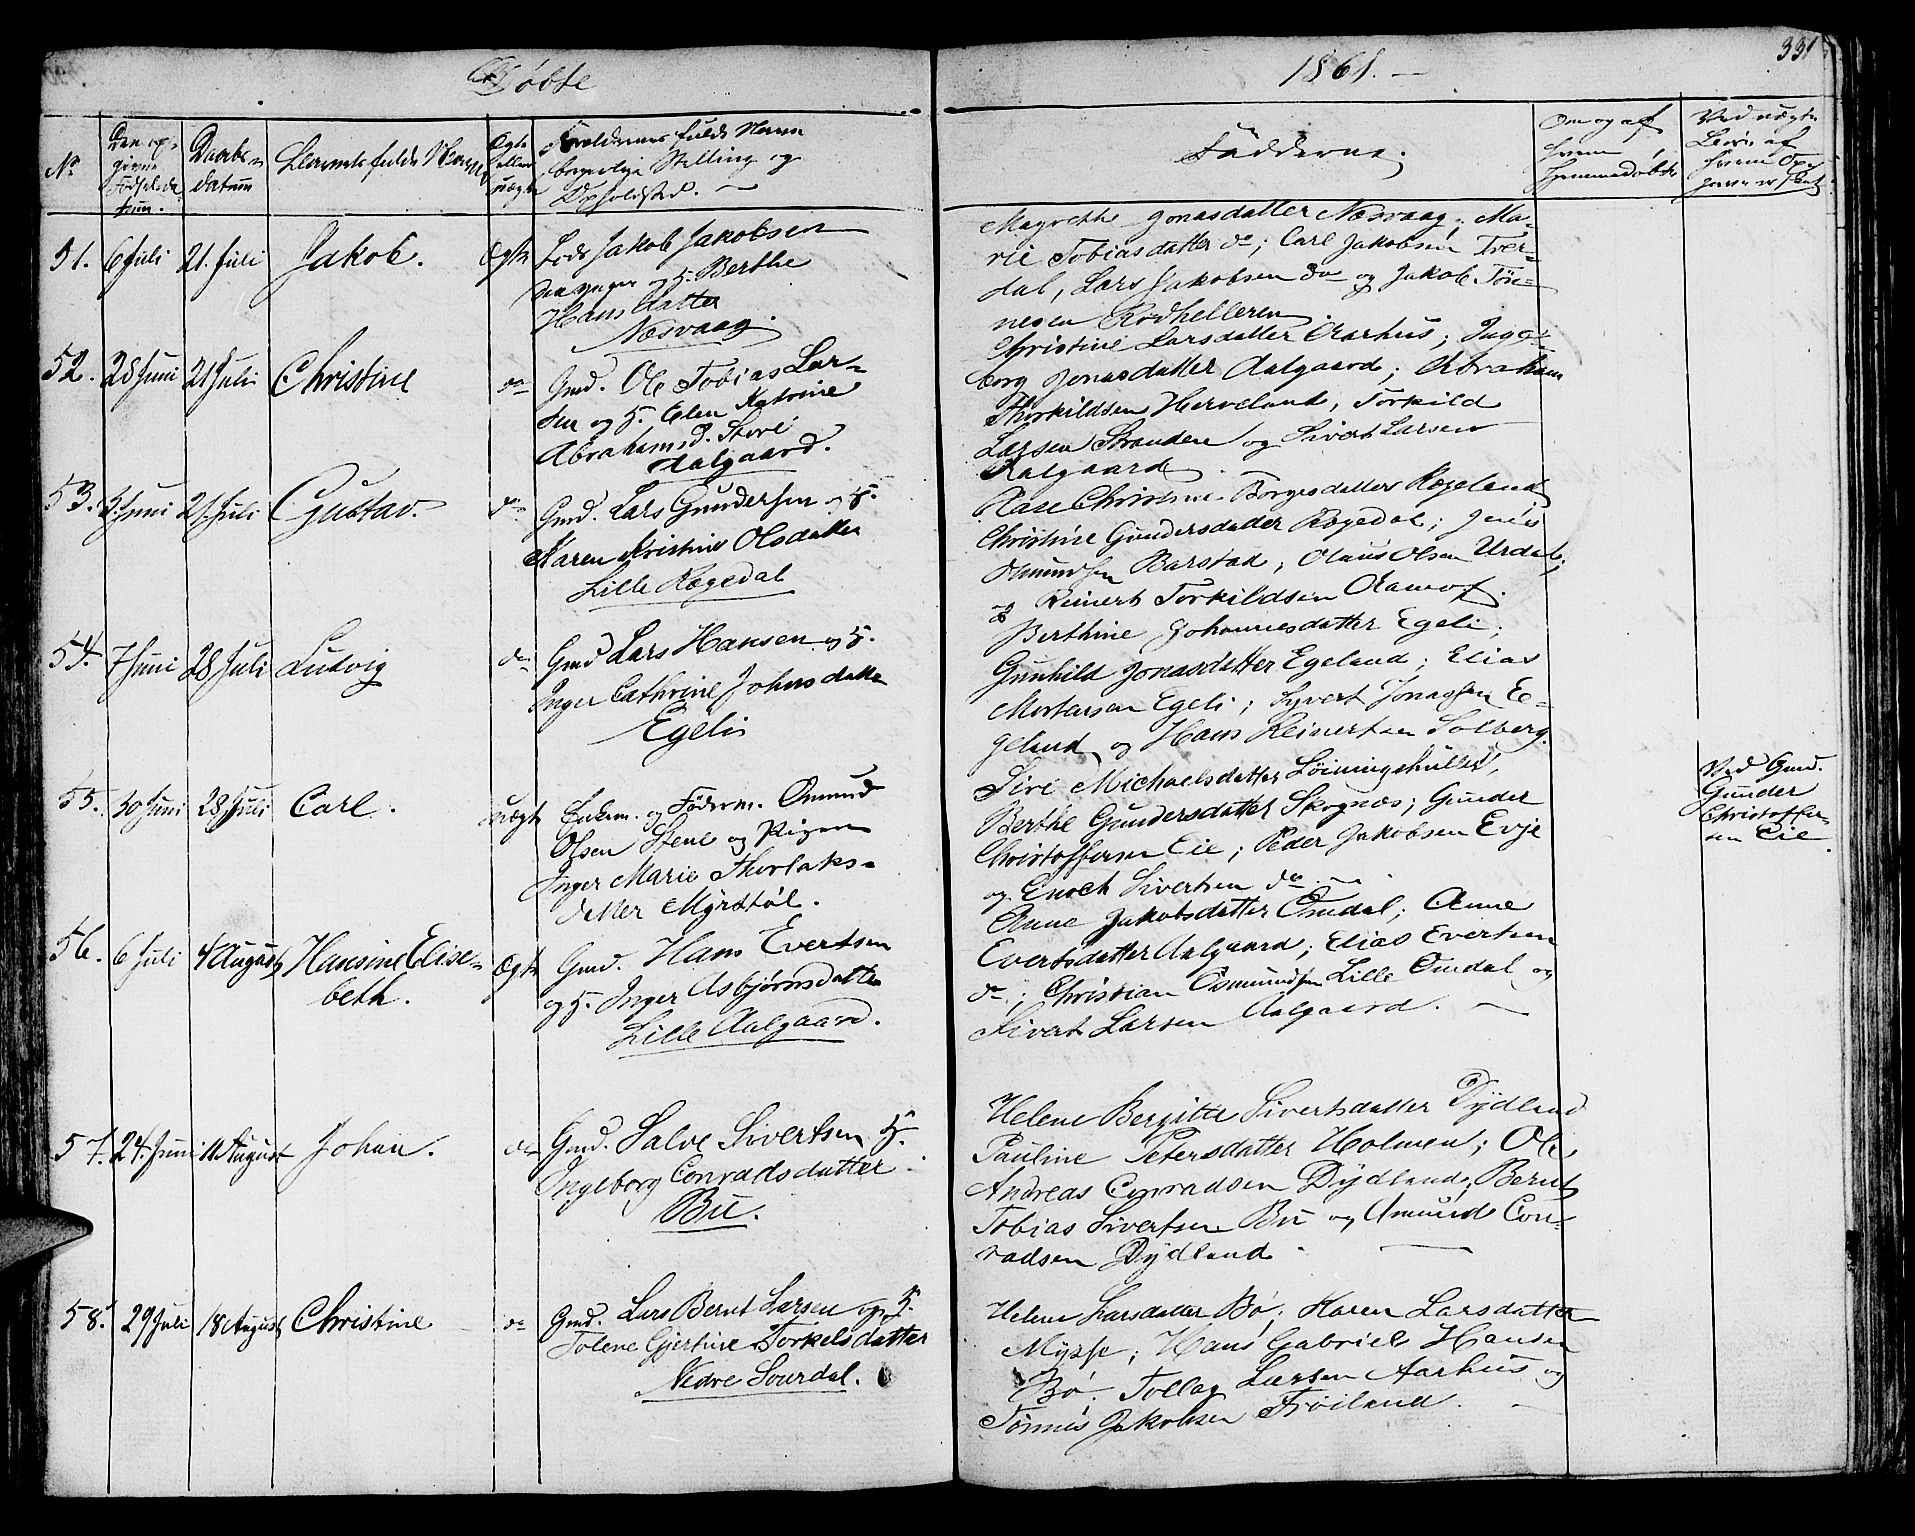 Døbte
1861. —
331
No
Den op-
givne
Fødselsda-
tum.
Daabs-
datum
Barnets fulde Navn
Ægte
eller
uægte
Forældrenes fulde Navn
borgerlige Stilling og
Opholdsted. —
Fadderne.
Om og af
hvem
hjemmedøbt
Ved uægte
Børn af
hvem Op-
gaven er skeet
51. 6 Juli 21. Juli Jakob. Ægte
Lods Jakob Jakobsen
den yngre og H. Berthe
Hansdatter
Næsvaag.
Magrethe Jonasdatter Næsvaag; Ma-
rie Tobiasdatter do; Carl Jakobsen Tver-
dal, Lars Jakobsen do og Jakob Tøn-
nesen Rødhelleren.
52. 28 Juni 21 Juli Christine do
Gmd. Ole Tobias Lar-
sen og H. Elen Katrine
Abrahamsd. Store
Aalgaard.
Christine Larsdatter Aarhus; Inge-
borg Jonasdatter Aalgaard; Abraham
Thorkildsen Herveland, Torkild
Larsen Stranden og Sivert Larsen
Aalgaard.
53. 3. Juni 21. Juli Gustav. do
Gmd. Lars Gundersen og H.
Karen Kristine Olsdatter
Lille Rægedal
Christine Børgesdatter Rægeland
Christine Gundersdatter Rægedal; Jens
Omundsen Barstad; Olaus Olsen Urdal;
og Reinert Torkildsen
54. 7 Juni 28 Juli Ludvig do
Gmd Lars Hansen og H.
Inger Cathrine Johnsdatter
Egeli
Berthine Johannesdatter Egeli;
Gunhild Jonasdatter Egeland; Elias
Mortensen Egeli; Syvert Jonassen E-
geland og Hans Reinertsen Solberg.
55. 30 Juni 28 Juli Carl. uægte
Enkem. og Føderm. Omund
Olsen Stene og Pigen
Inger Marie Thorlaks-
datter Myrstøl.
Siri Michaelsdatter
Berthe Gundersdatter Skognæs; Gunder
Christoffersen Eie; Peder Jakobsen Evje
og Enoch Sivertsen do. —
Ved Gmd.
Gunder
Christoffer-
sen Eie.
56. 6 Juli 4 August Hansine Elise-
beth. Ægte
Gmd. Hans Evertsen
og H. Inger Asbjørnsdatter
Lille Aalgaard.
Anne Jakobsdatter Omdal; Anne
Evertsdatter Aalgaard; Elias Evertsen
do; Christian Osmundsen Lille Omdal og
Sivert Larsen Aalgaard. —
57. 24. Juni 11 August Johan. do
Gmd. Salve Sivertsen H.
Ingeborg Conradsdatter
Bu.
Helene Bergitte Sivertsdatter Dydland
Pauline Petersdatter Holmen; Ole
Andreas Conradsen Dydland, Bernt
Tobias Sivertsen Bu og Amund Con-
radsen Dydland. —
58. 29 Juli 18 August Christine do
Gmd. Lars Bernt Larsen og H.
Tolene Gjertine Torkelsdatter
Nedre Sourdal.
Helene Larsdatter Bø; Karen Larsdatter
Mysse; Hans Gabriel Hansen
Bø. Tollag Larsen Aarhus og
Tønnes Jakobsen Frøiland. —